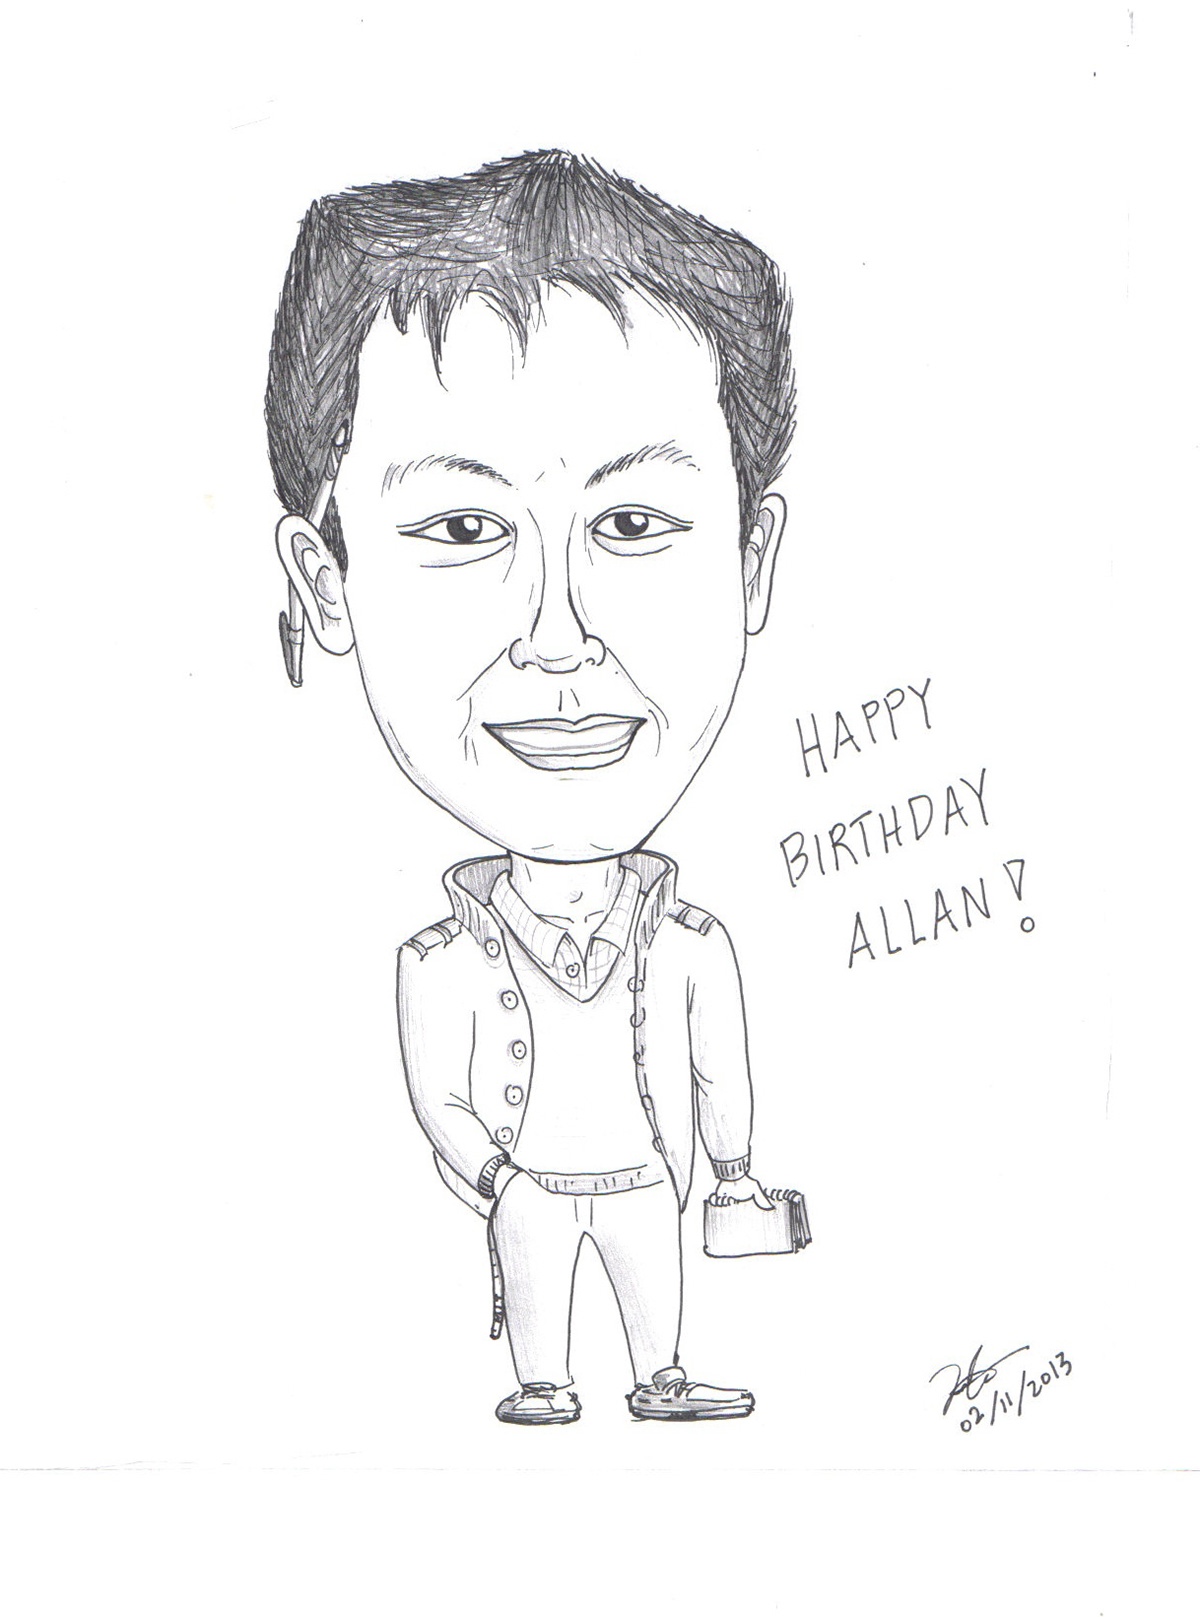 HAPPY
BIRTHDAY
ALLAN!
02/11/2013